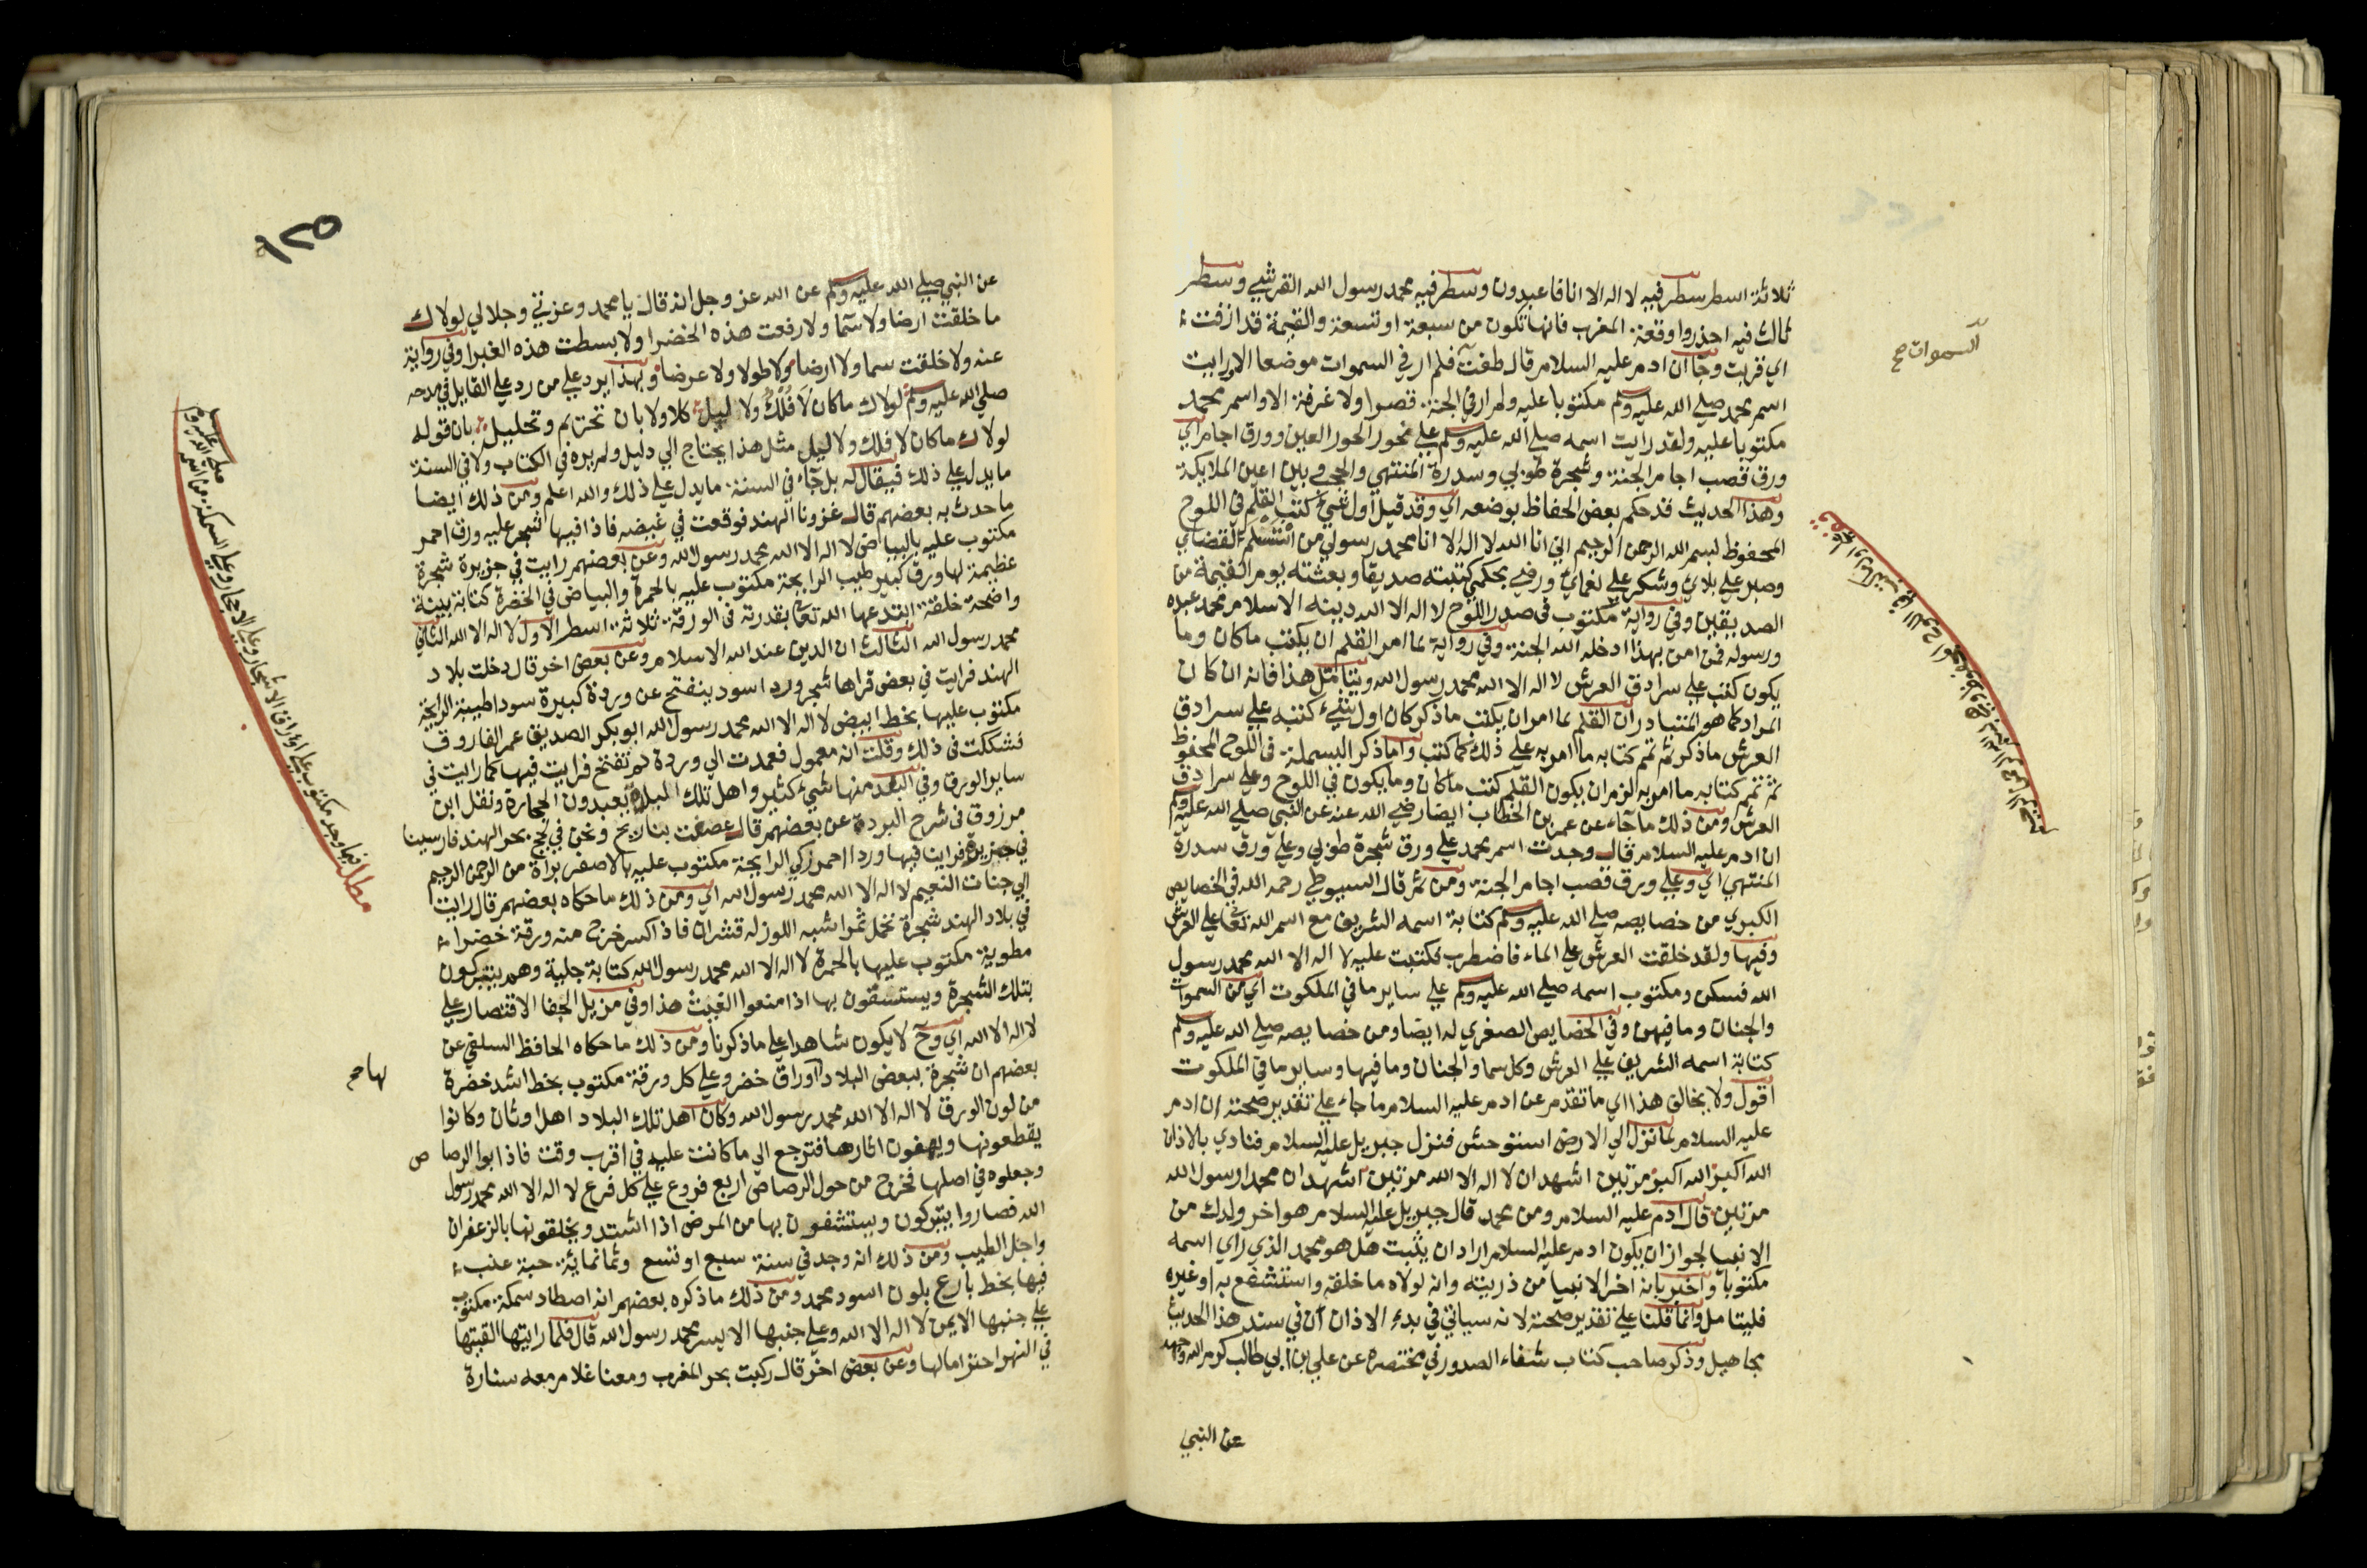 ثلاثة اسطر سطر فيه لا اله الا انا فاعبدون وسطر فيه محمد رسول الله القرشي وسطر
ثالث فيه احذروا وقعة المغرب فانها تكون من سبعة او تسعة والقيمة قد ازفت
اي قربت وجا ان ادم عليه السلام قال طفت فلم ار في السموات موضعا الا رايت
اسم محمد صلي الله عليه وسلم مكتوبا عليه ولم ار في الجنة قصرا ولا غرفة الا واسم محمد
مكتوبا عليه ولقد رايت اسمه صلي الله عليه وسلم علي نحور الحور العين وورق اجام اي
ورق قصب اجام الجنة وشجرة طوبي وسدرة المنتهي والحجب وبين اعين الملايكة
وهذا الحديث قد حكم بعض الحفاظ بوضعه اي وقد قيل اول شيء كتب القلم في اللوح
المحفوظ بسم الله الرحمن الرحيم اني انا الله لا اله الا انا محمد رسولي من استسلم لقضاي
وصبر علي بلاي وشكر علي نعماي ورضي بحكمي كتبته صديقا وبعثته يوم القيمة من
الصديقين وفي رواية مكتوب في صدر اللوح لا اله الا الله دينه الاسلام محمد عبده
ورسوله فمن امن بهذا ادخله الله الجنة وفي رواية لما امر القلم ان يكتب ما كان وما
يكون كتب علي سرادق العرش لا اله الا الله محمد رسول الله ويتامل هذا فانه ان كان
المراد كما هو المتبادر ان القلم لما امر ان يكتب ما ذكر كان اول شيء كتبه علي سرادق
العرش ما ذكر ثم تمم كتابه ما امر به علي ذلك كما كتب واما ذكر البسملة في اللوح المحفوظ
ثم تمم كتابه ما امر به الزم ان يكون القلم كتب ما كان وما يكون في اللوح وعلي سرادق
العرش ومن ذلك ما جاء عن عمر بن الخطاب ايضا رضي الله عنه عن النبي صلي الله عليه وسلم
ان ادم عليه السلام قال وجدت اسم محمد علي ورق شجرة طوبي وعلي ورق سدرة
المنتهي اي وعلي ورق قصب اجام الجنة ومن ثم قال السيوطي رحمه الله في الخصايص
الكبري من خصايصه صلي الله عليه وسلم كتابة اسمه الشريف مع اسم الله تعالي علي العرش
وفيها ولقد خلقت العرش علي الماء فاضطرب فكتبت عليه لا اله الا الله محمد رسول
الله فسكن ومكتوب اسمه صلي الله عليه وسلم علي ساير ما في الملكوت اي من السموات
والجنان وما فيهن وفي الخصايص الصغري له ايضا ومن خصايصه صلي الله عليه وسلم
كتابة اسمه الشريف علي العرش وكل سما والجنان وما فيها وساير ما في الملكوت
اقول ولا يخالف هذا اي ما تقدم عن ادم عليه السلام ما جاء علي تقدير صحته ان ادم
عليه السلام لما نزل الي الارض استوحش فنزل جبريل عليه السلام فنادي بالاذان
الله اكبر الله اكبر مرتين اشهد ان لا اله الا الله مرتين اشهد ان محمدا رسول الله
مرتين قال ادم عليه السلام ومن محمد قال جبريل عليه السلام هو اخر ولدك من
الانبيا لجواز ان يكون ادم عليه السلام اراد ان يثبت هل هو محمد الذي راي اسمه
مكتوبا واخبر بانه اخر الانبيا من ذريته وانه لولاه ما خلقه واستشفع به او غيره
فليتامل وانما قلنا علي تقدير صحته لانه سياتي في بدء الاذان ان في سند هذا الحديث
مجاهيل وذكر صاحب كتاب شفاء الصدور في مختصره عن علي بن ابي طالب كرم الله وجهه
عن النبي
السموات صح
١٢٥
عن النبي صلي الله عليه وسلم عن الله عز وجل انه قال يا محمد وعزتي وجلالي لولاك
ما خلقت ارضا ولا سما ولا رفعت هذه الخضرا ولا بسطت هذه الغبرا وفي رواية
عنه ولا خلقت سما ولا ارضا ولا طولا ولا عرضا وبهذا يرد علي من رد علي القايل في مدحه
صلي الله عليه وسلم لولاك ما كان لا فلك ولا ليل كلا ولا بان تحريم وتحليل بان قوله
لولاك ما كان لا فلك ولا ليل مثل هذا يحتاج الي دليل ولم يرد في الكتاب ولا في السنة
ما يدل علي ذلك فيقال له بل جاء في السنة ما يدل علي ذلك والله اعلم ومن ذلك ايضا
ما حدث به بعضهم قال غزونا الهند فوقعت في غيضه فاذا فيها شجر عليه ورق احمر
مكتوب عليه بالبياض لا اله الا الله محمد رسول الله وعن بعضهم رايت في جزيرة شجرة
عظيمة لها ورق كبير طيب الرايحة مكتوب عليه بالحمرة والبياض في الخضرة كتابة بينة
واضحة خلقة ابتدعها الله تعالي بقدرته في الورقة ثلاثة اسطر الاول لا اله الا الله الثاني
محمد رسول الله الثالث ان الدين عند الله الاسلام وعن بعض اخر قال دخلت بلاد
الهند فرايت في بعض قراها شجر ورد اسود ينفتح عن وردة كبيرة سودا طيبة الرايحة
مكتوب عليها بخط ابيض لا اله الا الله محمد رسول الله ابو بكر الصديق عمر الفاروق
فشككت في ذلك وقلت انه معمول فعمدت الي وردة لم تفتح فرايت فيها كما رايت في
ساير الورق وفي البلد منها شيء كثير واهل تلك البلدة يعبدون الحجارة ونقل ابن
مرزوق في شرح البردة عن بعضهم قال عصفت بنا ريح ونحن في لجج بحر الهند فارسينا
في جزيرة فراينا فيها وردا احمر زكي الرايحة مكتوب عليه بالاصفر براة من الرحمن الرحيم
الي جنات النعيم لا اله الا الله محمد رسول الله اي ومن ذلك ما حكاه بعضهم قال رايت
في بلاد الهند شجرة تحمل ثمرا شبه اللوز له قشران فاذا كسر خرج منه ورقة خضرا
مطوية مكتوب عليها بالحمرة لا اله الا الله محمد رسول الله كتابة جلية وهم يتبركون
بتلك الشجرة ويستسقون بها اذا منعوا الغيث هذا وفي مزيل الخفا الاقتصار علي
لا اله الا الله اي وح لا يكون شاهدا علي ما ذكرنا ومن ذلك ما حكاه الحافظ السلفي عن
بعضهم ان شجرة ببعض البلاد اوراق خضر وعلي كل ورقة مكتوب بخط اشد خضرة
من لون الورق لا اله الا الله محمد رسول الله وكان اهل تلك البلاد اهل اوثان وكانوا
يقطعونها ويعفون اثارها فترجع الي ما كانت عليه في اقرب وقت فاذابوا الرصا ص
وجعلوه في اصلها فخرج من حول الرصاص اربع فروع علي كل فرع لا اله الا الله محمد رسول
الله فصاروا يتبركون ويستشفون بها من المرض اذا اشتد ويخلقونها بالزعفران
واجل الطيب ومن ذلك انه وجد في سنة سبع او تسع وثمانماية حبة عنب
فيها بخط بارع بلون اسود محمد ومن ذلك ما ذكره بعضهم انه اصطاد سمكة مكتوب
علي جنبها الايمن لا اله الا الله وعلي جنبها الايسر محمد رسول الله قال فلما رايتها القيتها
في النهر احتراما لها وعن بعض اخر قال ركبت بحر المغرب ومعنا غلام معه سنارة
لها صح